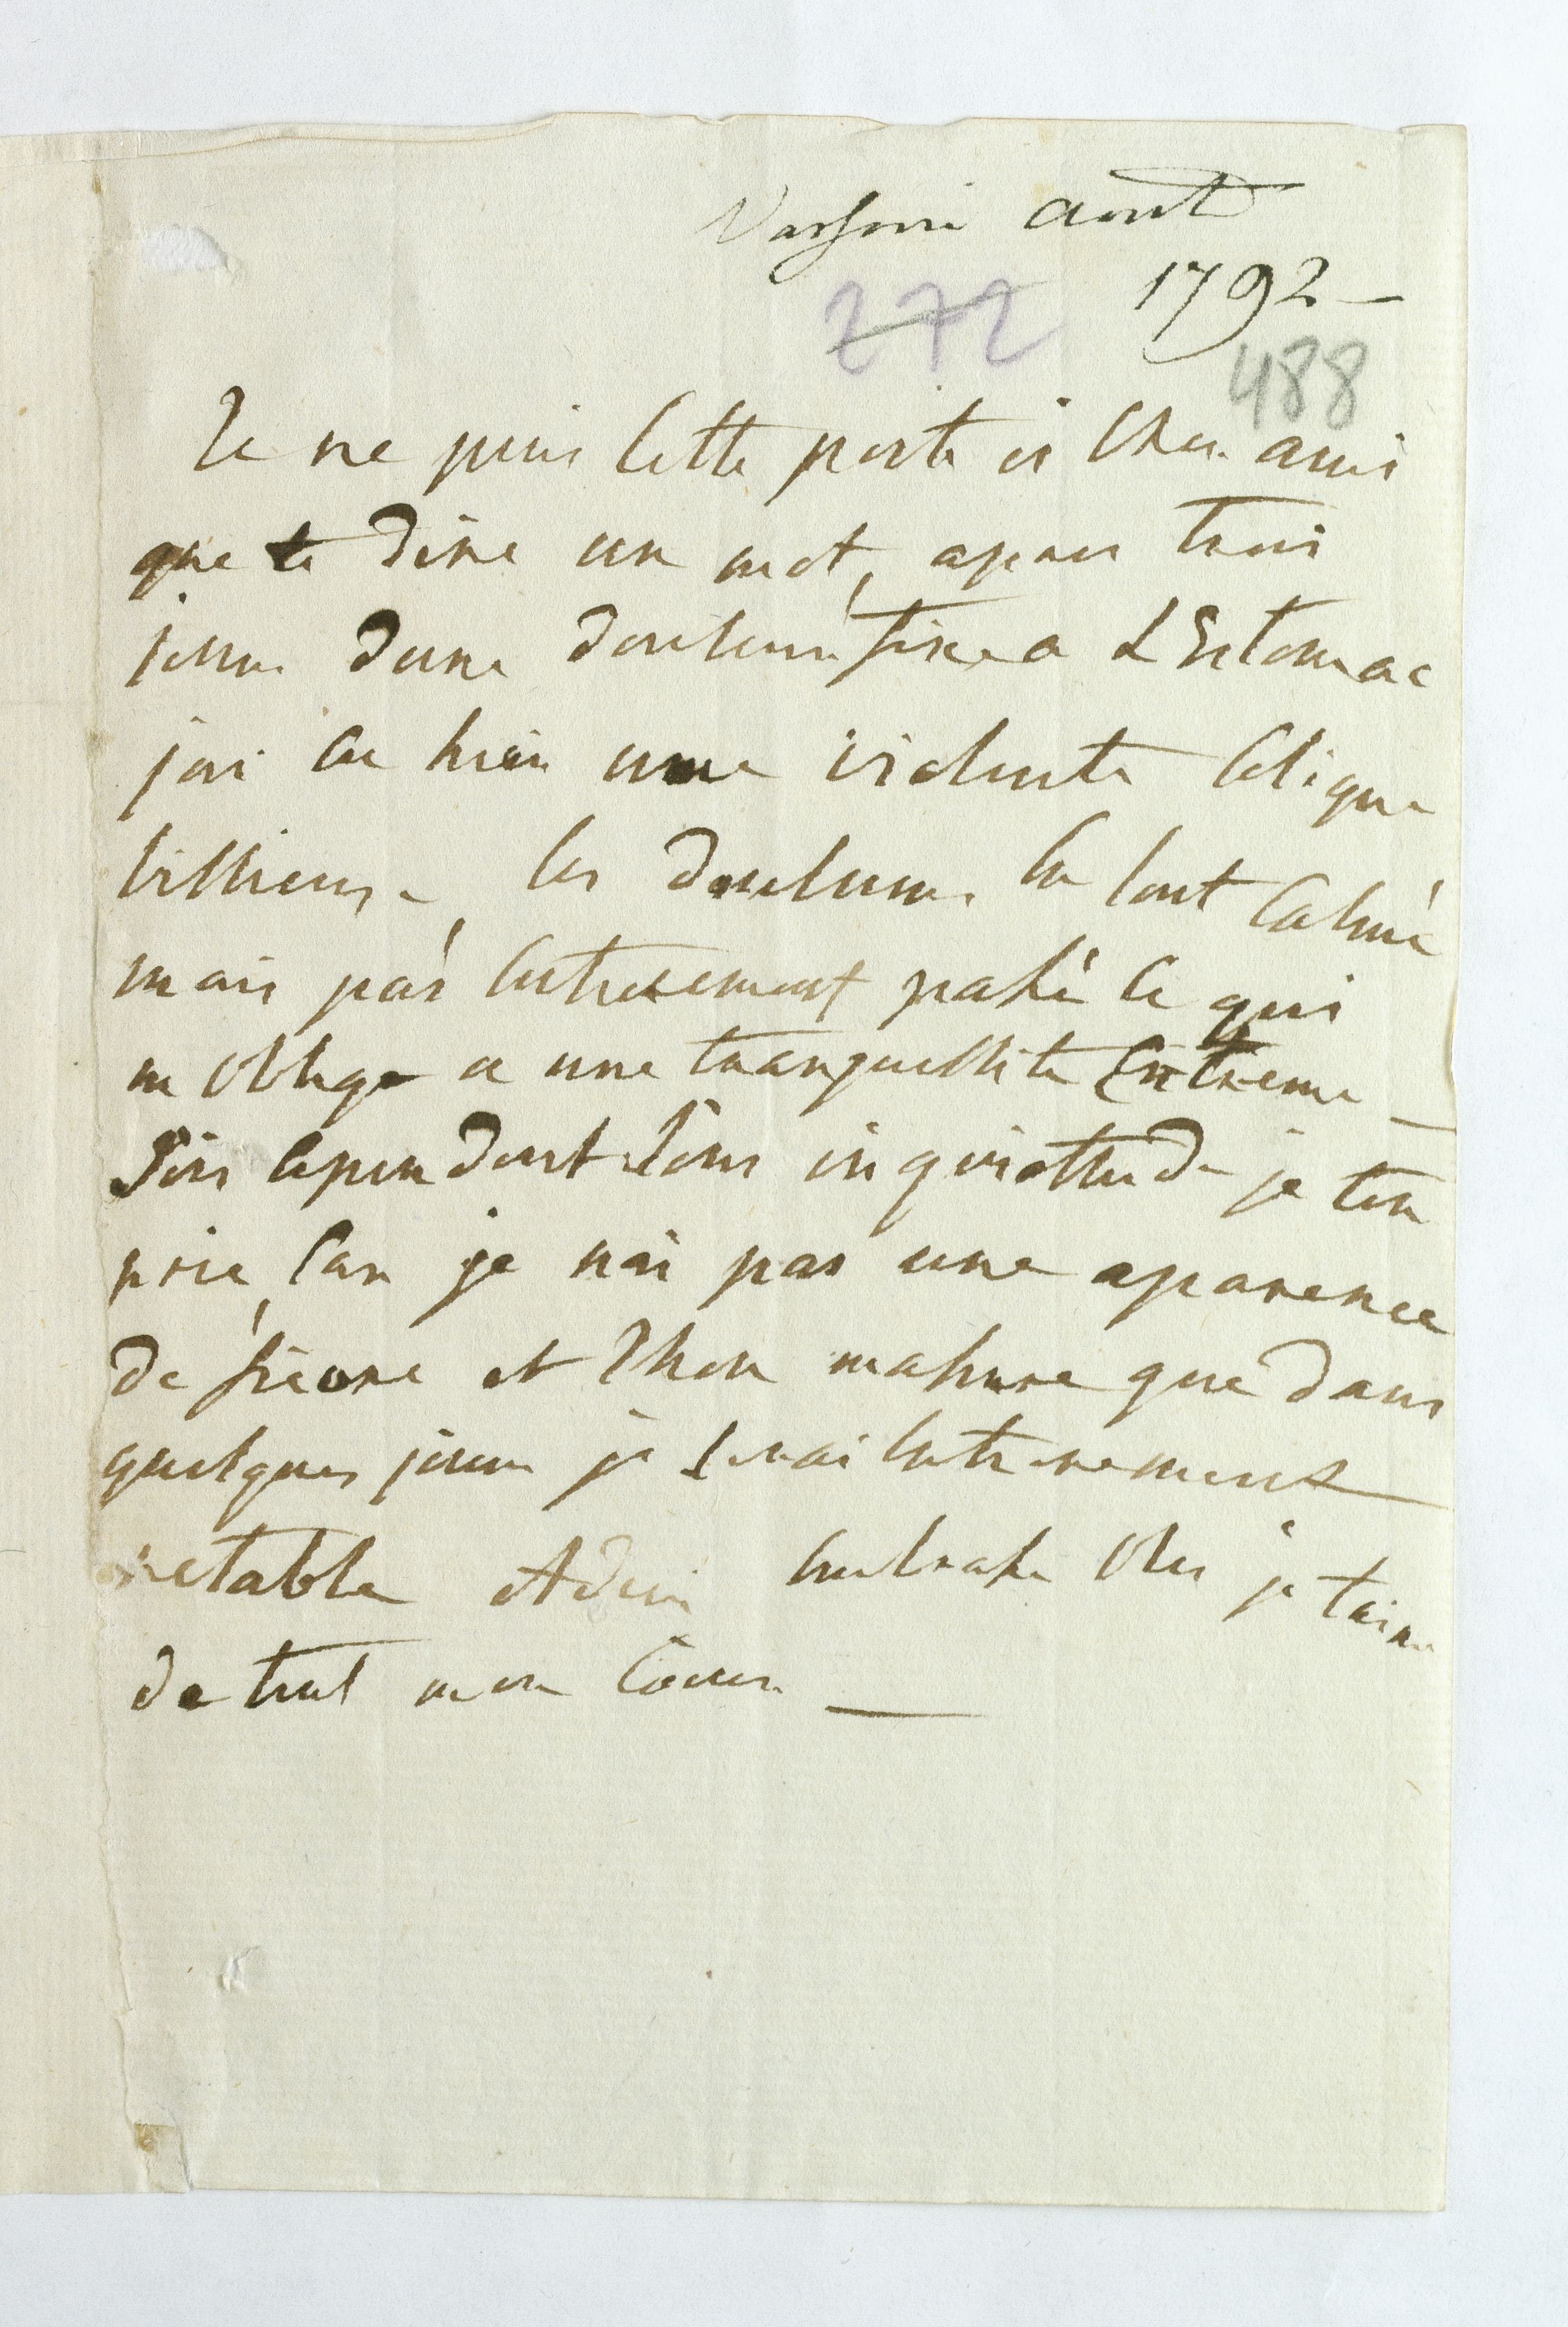 Varsovie aout
1792 –
272
488
Je ne puis cette poste ci cher ami
que te dire un mot, apres trois
jours dune douleur fixe a LEstomac
jai eu hier une violente Colique
billieuse, les douleurs se sont Calmé
mais pas entierement passé ce qui
m oblige a une tranquellite Extreme –
Sois cependant sans inquiettude je ten
prie, Car je nai pas une aparence
de fievre et lhon massure que dans
quelques jours je serai entierement
retablie Adieu embrasse je taime
de tout mon Coeur —